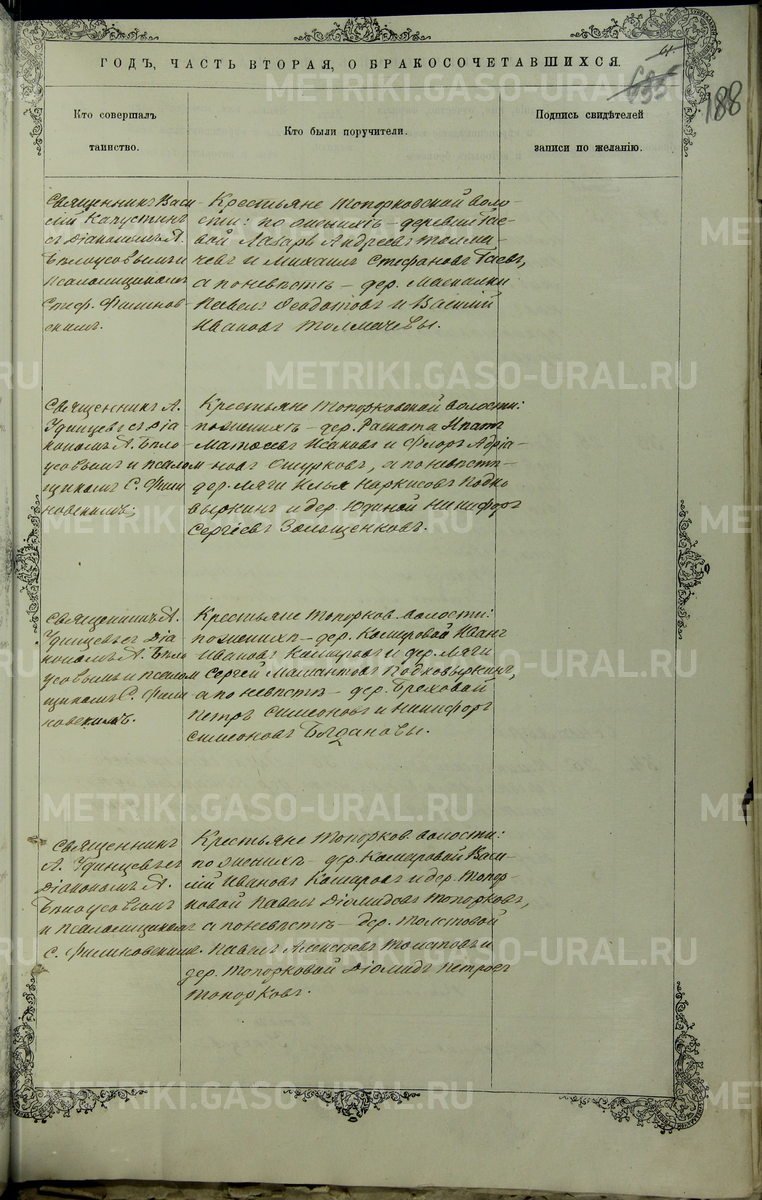 188
635
ГОДЪ, ЧАСТЬ ВТОРАЯ, О БРАКОСОЧЕТАВШИХСЯ.
Кто совершалъ
таинство.
Кто были поручители.
Подпись свидѣтелей
записи по желанію.
Священникъ Васи-
лій Капустинъ
съ Діакономъ А.
Бѣлоусовымъ и
псаломщикомъ
Стеф. Филинов-
скимъ.
Крестьяне Топорковской воло-
сти: по женихѣ – деревни Гае-
вой Лазарь Андреевъ Толма-
чевъ и Михаилъ Стефановъ Гаевъ,
а по невѣстѣ – дер.
Павелъ Ѳеодотовъ и Василій
Ивановъ Толмачевы.
Священникъ А.
Удинцевъ съ Діа-
кономъ А. Бѣло-
усовымъ и псалом
щикомъ С. Фили
новскимъ.
Крестьяне Топорковской волости:
по женихѣ – дер. Рашата Ипатъ
Матѳеевъ Исаковъ и Флоръ Адріа-
новъ Ощурковъ, а по невѣстѣ –
дер. Ляги Илья Наркисовъ Подко
выркинъ и дер. Юдиной Никифоръ
Сергѣевъ
Священникъ А.
Удинцевъ съ Діа
кономъ А. Бѣло
усовымъ и псалом
щикомъ С. Фили
новскимъ.
Крестьяне Топорков. волости:
по женихѣ – дер. Кашировой Иванъ
Ивановъ Кашировъ и дер. Ляги
Сергей Мамантовъ Подковыркинъ,
а по невѣстѣ – дер. Бреховой
Петръ Симеоновъ и Никифоръ
Симеоновъ
Священникъ
А. Удинцевъ съ
Діакономъ А.
Бѣлоусовымъ
и Псаломщикомъ
С. Филиновскимъ.
Крестьяне Топорков. волости:
по женихѣ – дер. Кашировой Васи-
лій Ивановъ Кашировъ и дер. Топор-
ковой Павелъ Діомидовъ Топорковъ,
а по невѣстѣ – дер. Толстовой
Павелъ Алексѣевъ Толстовъ и
дер. Топорковой Діомидъ Петровъ
Топорковъ.
METRIKI.GASO-URAL.RU